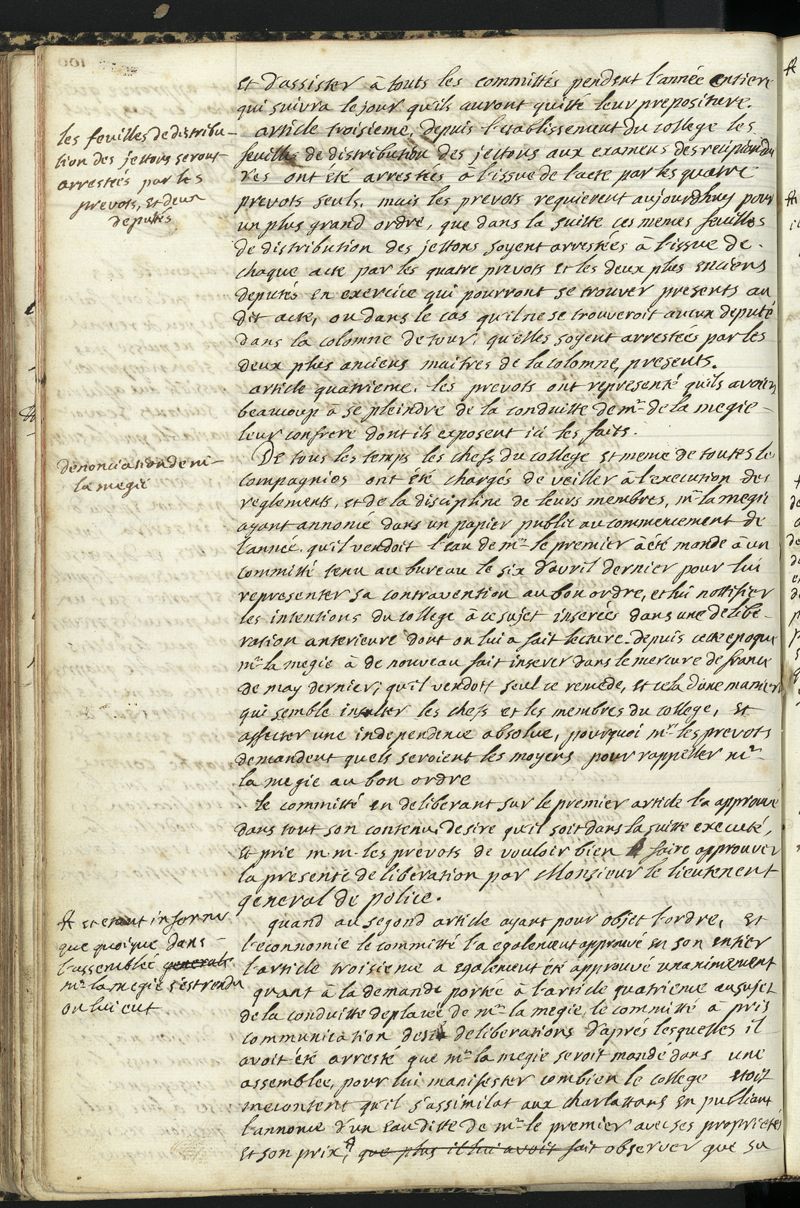 et d'assister à touts les committés pendent l'année entiere
qui suivra le jour qu'ils auront quitté leur prepositure.
les feuilles de distribu-
tion des jettons seront
arrestées par les
prevots, et deux
deputés
article troisieme, depuis l'etablissement du college les
feuilles de distribution des jettons aux examens des recipiendai
res ont été arrestées à l'issue de l'acte par les quatre
prevots seuls. mais les prevots requierent aujourdhuy pour
un plus grand ordre, que dans la suitte ces memes feuilles
de distribution des jettons soyent arrestées à l'issue de
chaque acte par les quatre prevots et les deux plus enciens
deputés en exercice qui pourront se trouver presents au
dit acte, ou dans le cas qu'il ne se trouveroit aucun deputé
dans la colomne de tour, qu'elles soyent arrestées par les
deux plus anciens maitres de la colomne presents.
article quatrieme. les prevots ont representé qu'ils avoient
beaucoup a se pleindre de la conduitte de mr. de la megie
leur confrere dont ils exposent ici les faits.
denonciation de mr
la megie
De tous les temps les chefs du college et meme de toutes les
compagnies ont été chargés de veiller à l'execution des
reglements, et de la discipline de leurs membres, mr. la megie
ayant annoncé dans un papier public au commencement de
l'année qu'il vendoit l'eau de mr. le premier à été mandé à un
committé tenu au bureau le six d'avril dernier pour lui
representer sa contravention au bon ordre, et lui nottifier
les intentions du college à ce sujet inserées dans une delibe-
ration anterieure dont on lui a fait lecture. depuis cette epoque
mr. la megie à de nouveau fait inserer dans le mercure de france
de may dernier, qu'il vendoit seul ce remede, et cela d'une maniere
qui semble insulter les chefs et les membres du college, et
affecter une independence absolue, pourquoi mrs. les prevots
demandent quels seroient les moyens pour rappeller mr.
la megie au bon ordre
le committé en deliberant sur le premier article l'a approuvé
dans tout son contenu, desire qu'il soit dans la suitte executé,
et prie m.m. les prevots de vouloir bien faire approuver
la presente deliberation par Monsieur le lieutenent
general de police.
quand au segond article ayant pour objet l'ordre, et
l'economnie le committé l'a egalement approuvé en son entier
l'article troisieme a egalement été approuvé unanimement
quant à la demande portée à l'article quatrieme au sujet
de la conduitte deplacée de mr. la megie, le committé à pris
communication des deliberations d'après lesquelles il
avoit été arresté que mr. la megie seroit mandé dans une
assemblée, pour lui manifester combien le college etoit
mecontent qu'il s'assimilat aux charlattans en publiant
l'annonce d'un eau ditte de mr. le premier avec ses proprietés
et son prix, que plus il lui avoit fait observer que sa
et etant informé
que quoique dans
l'assemblée generale
mr. la megie s'est rendu
on lui eut